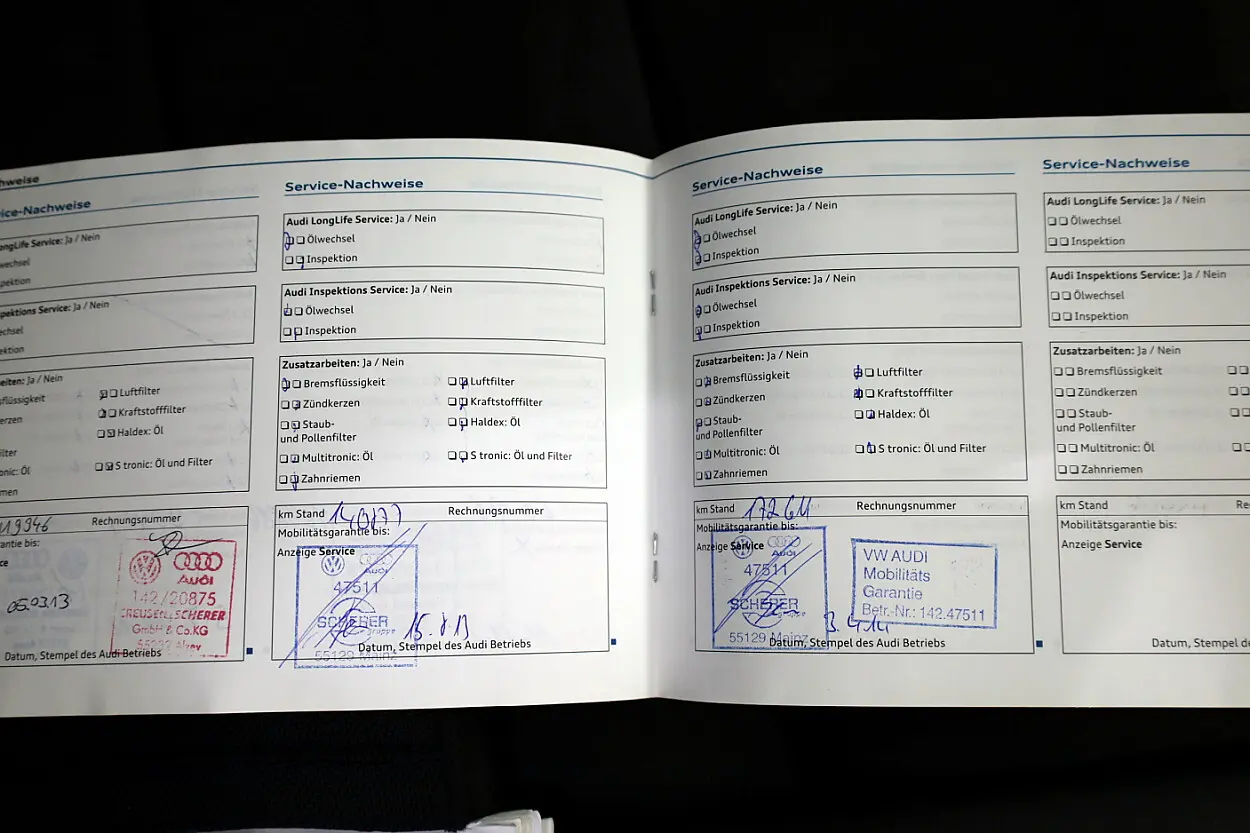 Service-Nachweise
LongLife Service: Ja / Nein
Inspektions Service: Ja / Nein
Ja / Nein
Luftfilter
Kraftstofffilter
Haldex: Öl
S tronic: Öl und Filter
19946
Rechnungsnummer
05.03.13
Audi
142/20875
KREUSEN & SCHERER
GmbH & Co.KG
Datum, Stempel des Audi Betriebs
Service-Nachweise
Audi LongLife Service: Ja / Nein
Ölwechsel
Inspektion
Audi Inspektions Service: Ja / Nein
Ölwechsel
Inspektion
Zusatzarbeiten: Ja / Nein
Bremsflüssigkeit
Luftfilter
Zündkerzen
Kraftstofffilter
Staub-
und Pollenfilter
Haldex: Öl
Multitronic: Öl
S tronic: Öl und Filter
Zahnriemen
km Stand
Rechnungsnummer
Mobilitätsgarantie bis:
Anzeige Service
Audi
47511
SCHERER
gruppe
55129 Mainz
15.8.13
Datum, Stempel des Audi Betriebs
Service-Nachweise
Audi LongLife Service: Ja / Nein
Ölwechsel
Inspektion
Audi Inspektions Service: Ja / Nein
Ölwechsel
Inspektion
Zusatzarbeiten: Ja / Nein
Bremsflüssigkeit
Luftfilter
Zündkerzen
Kraftstofffilter
Staub-
und Pollenfilter
Haldex: Öl
Multitronic: Öl
S tronic: Öl und Filter
Zahnriemen
km Stand
Rechnungsnummer
Mobilitätsgarantie bis:
Anzeige Service
Audi
47511
SCHERER
55129 Mainz
3.4.14
VW AUDI
Mobilitäts
Garantie
Betr.-Nr.: 142.47511
Datum, Stempel des Audi Betriebs
Service-Nachweise
Audi LongLife Service: Ja / Nein
Ölwechsel
Inspektion
Audi Inspektions Service: Ja / Nein
Ölwechsel
Inspektion
Zusatzarbeiten: Ja / Nein
Bremsflüssigkeit
Zündkerzen
Staub-
und Pollenfilter
Multitronic: Öl
Zahnriemen
km Stand
Mobilitätsgarantie bis:
Anzeige Service
Datum, Stempel